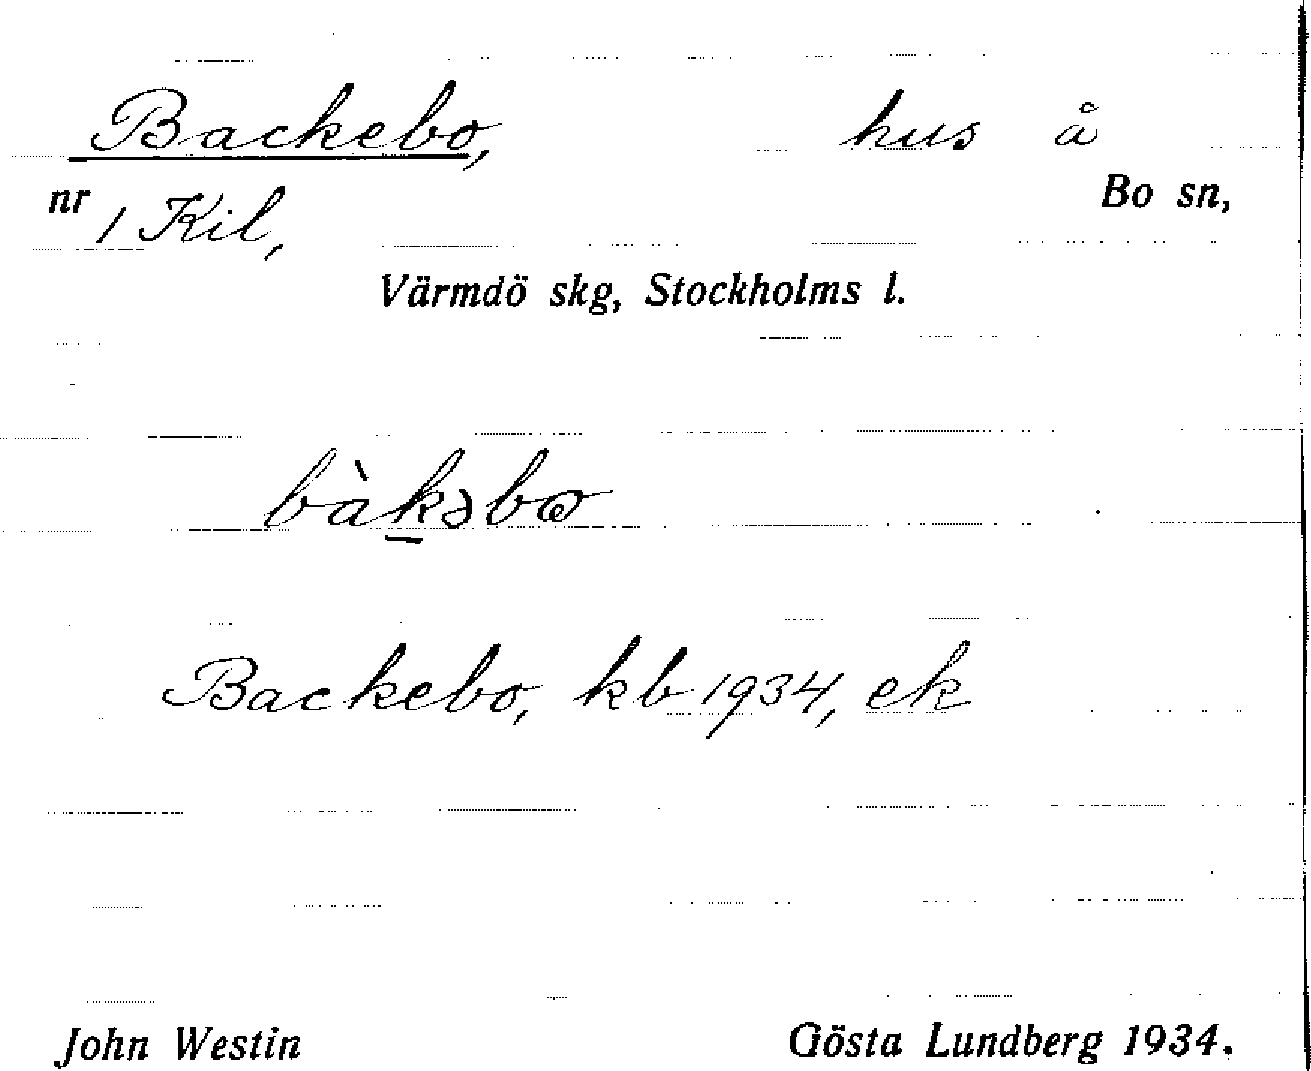 Backebo, hus å
nr 1 Kil, Bo sn,
Värmdö skg, Stockholms l.
bàk̠əbω
Backebo, kb 1934, ek
John Westin Gösta Lundberg 1934.